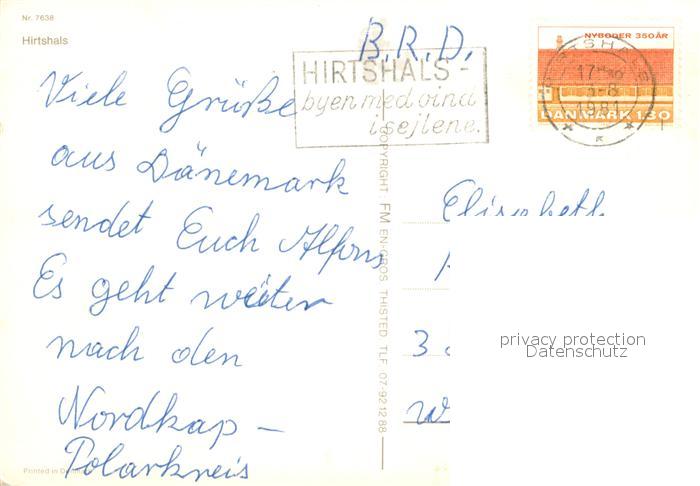 Nr. 7638
Hirtshals
B.R.D.
NYBODER 350 ÅR
DANMARK 130
HIRTSHALS
17
1981
HIRTSHALS -
byen med vind
i sejlene.
Viele Grüße
aus Dänemark
sendet Euch Alfons
Es geht weiter
nach den
Nordkap -
Polarkreis
COPYRIGHT FM EN-GROS THISTED TLF 07-92 12 88
Elisabeth
3
W
privacy protection
Datenschutz
Printed in